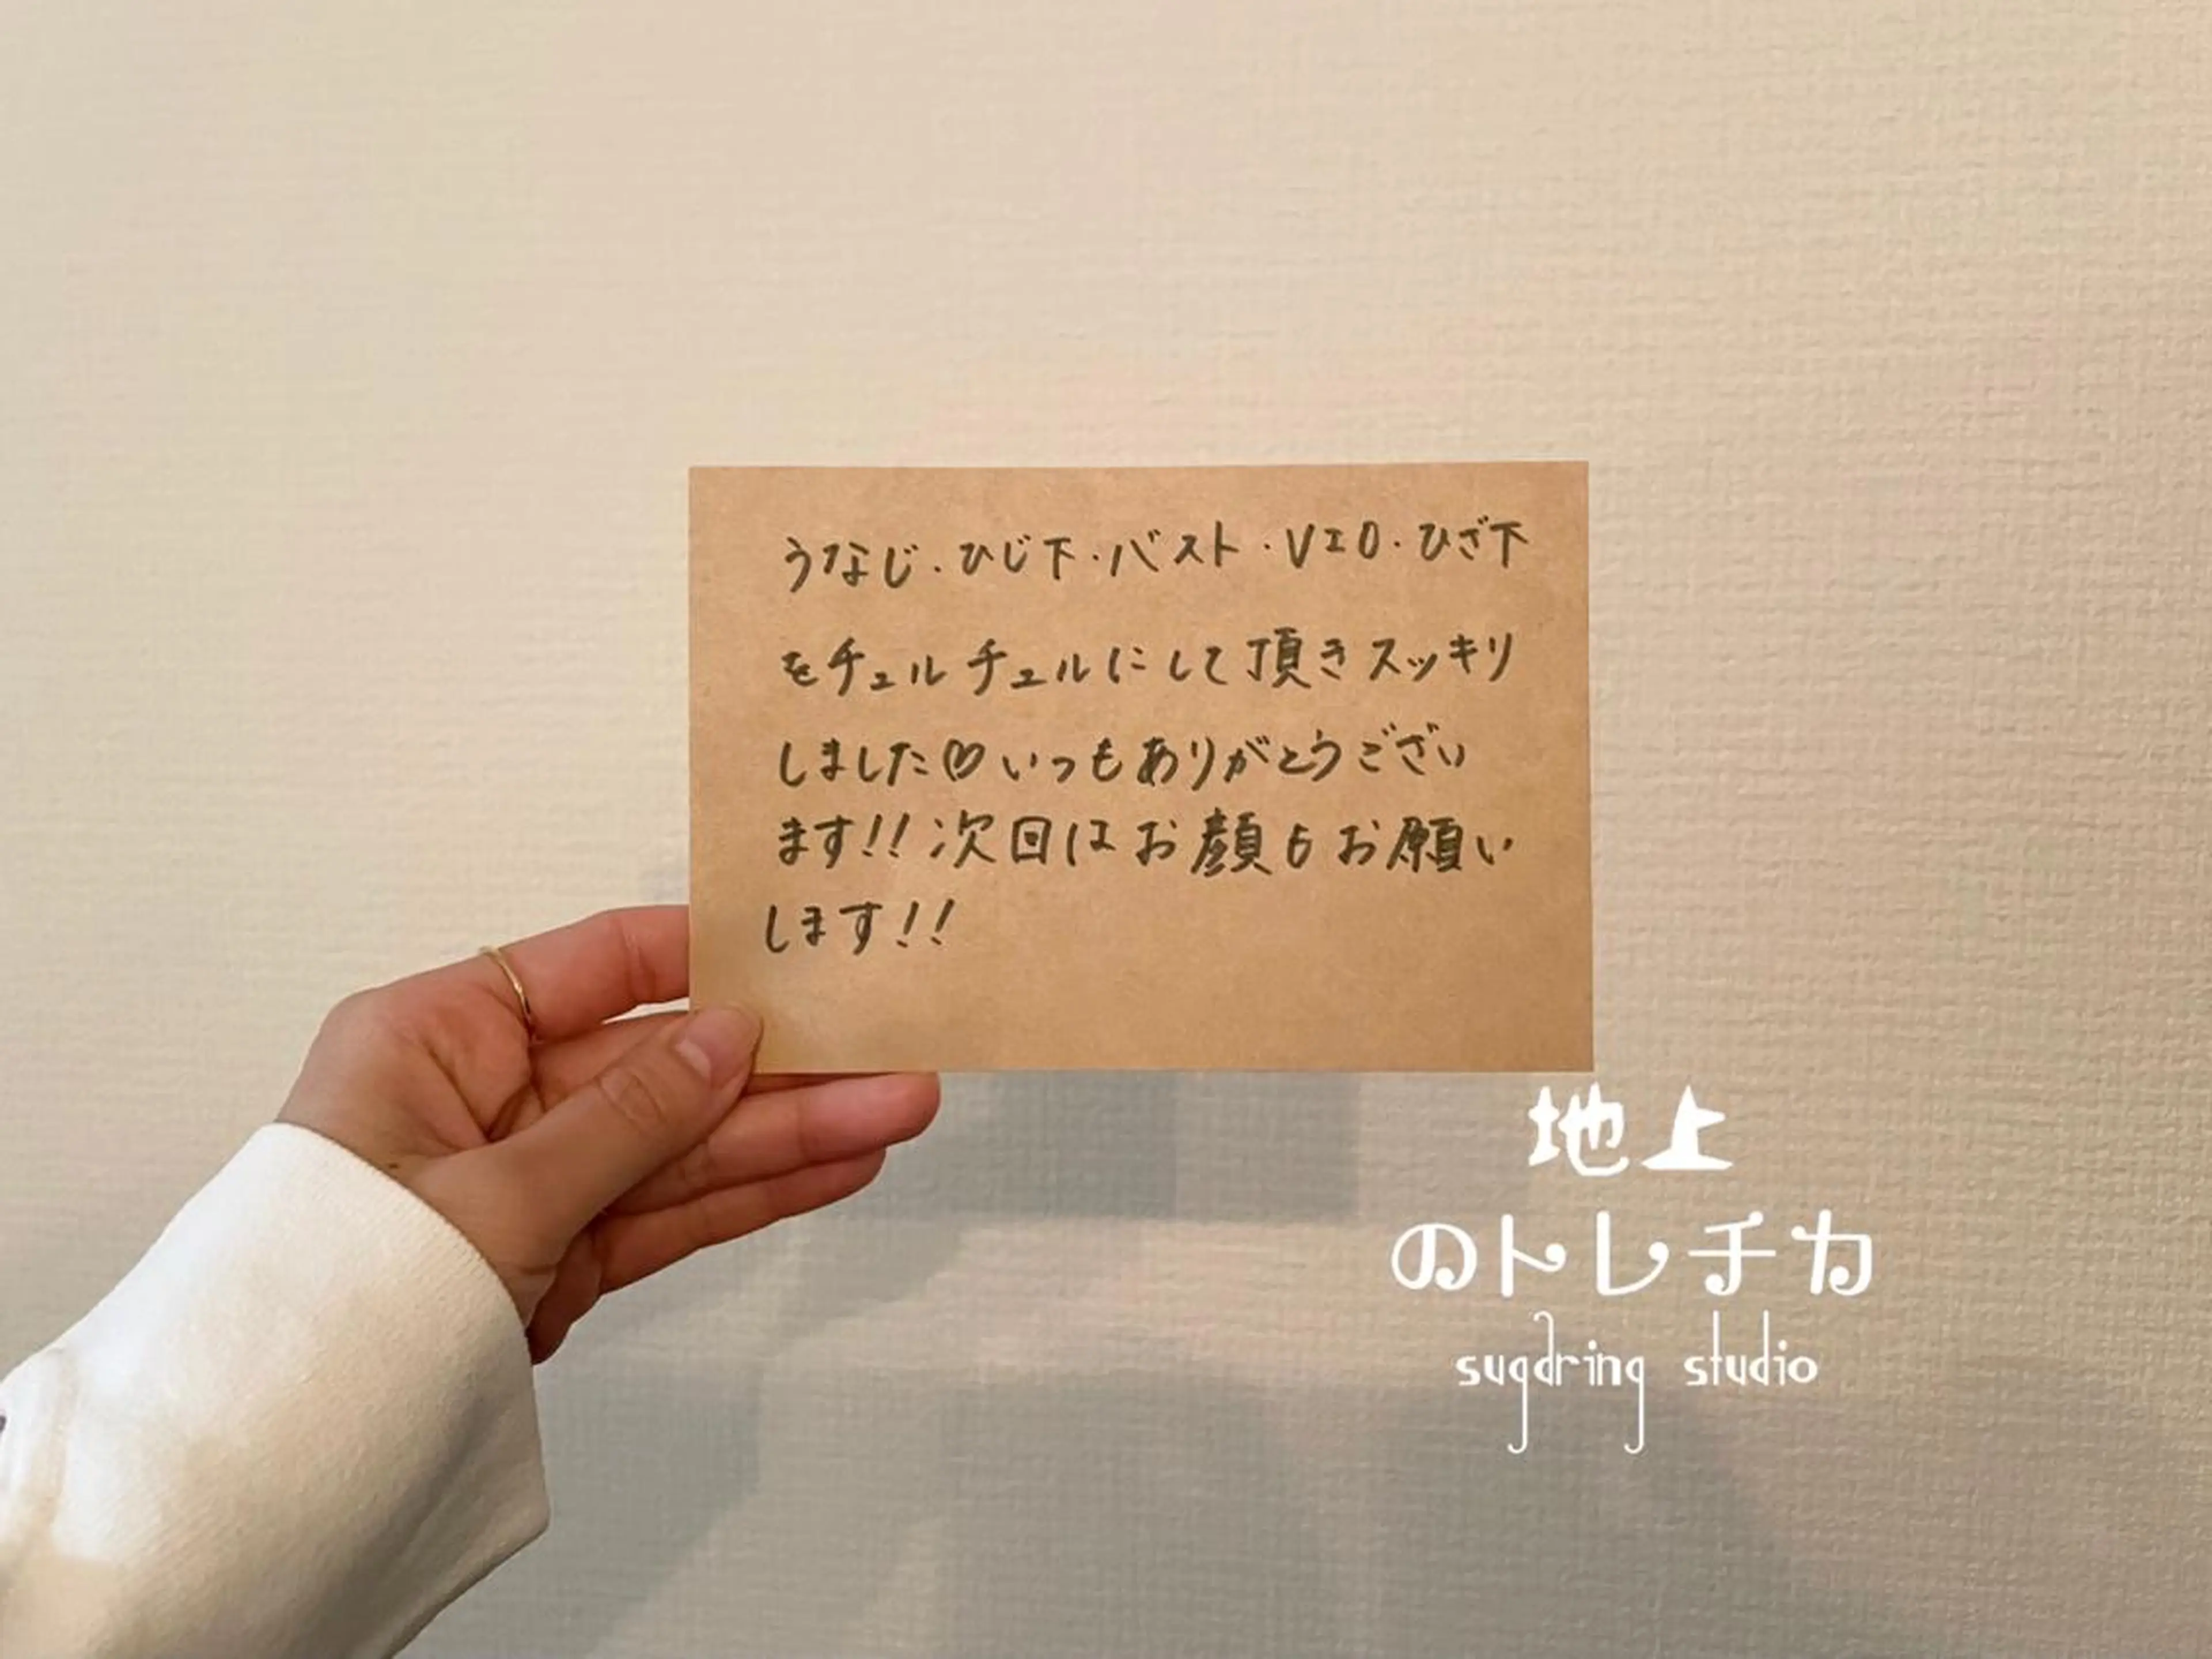 うなじ・ひじ下・バスト・VIO・ひざ下
をチュルチュルにして頂きスッキリ
しました♡いつもありがとうござい
ます!!次回はお顔もお願い
します!!
地上
のトレチカ
sugaring studio